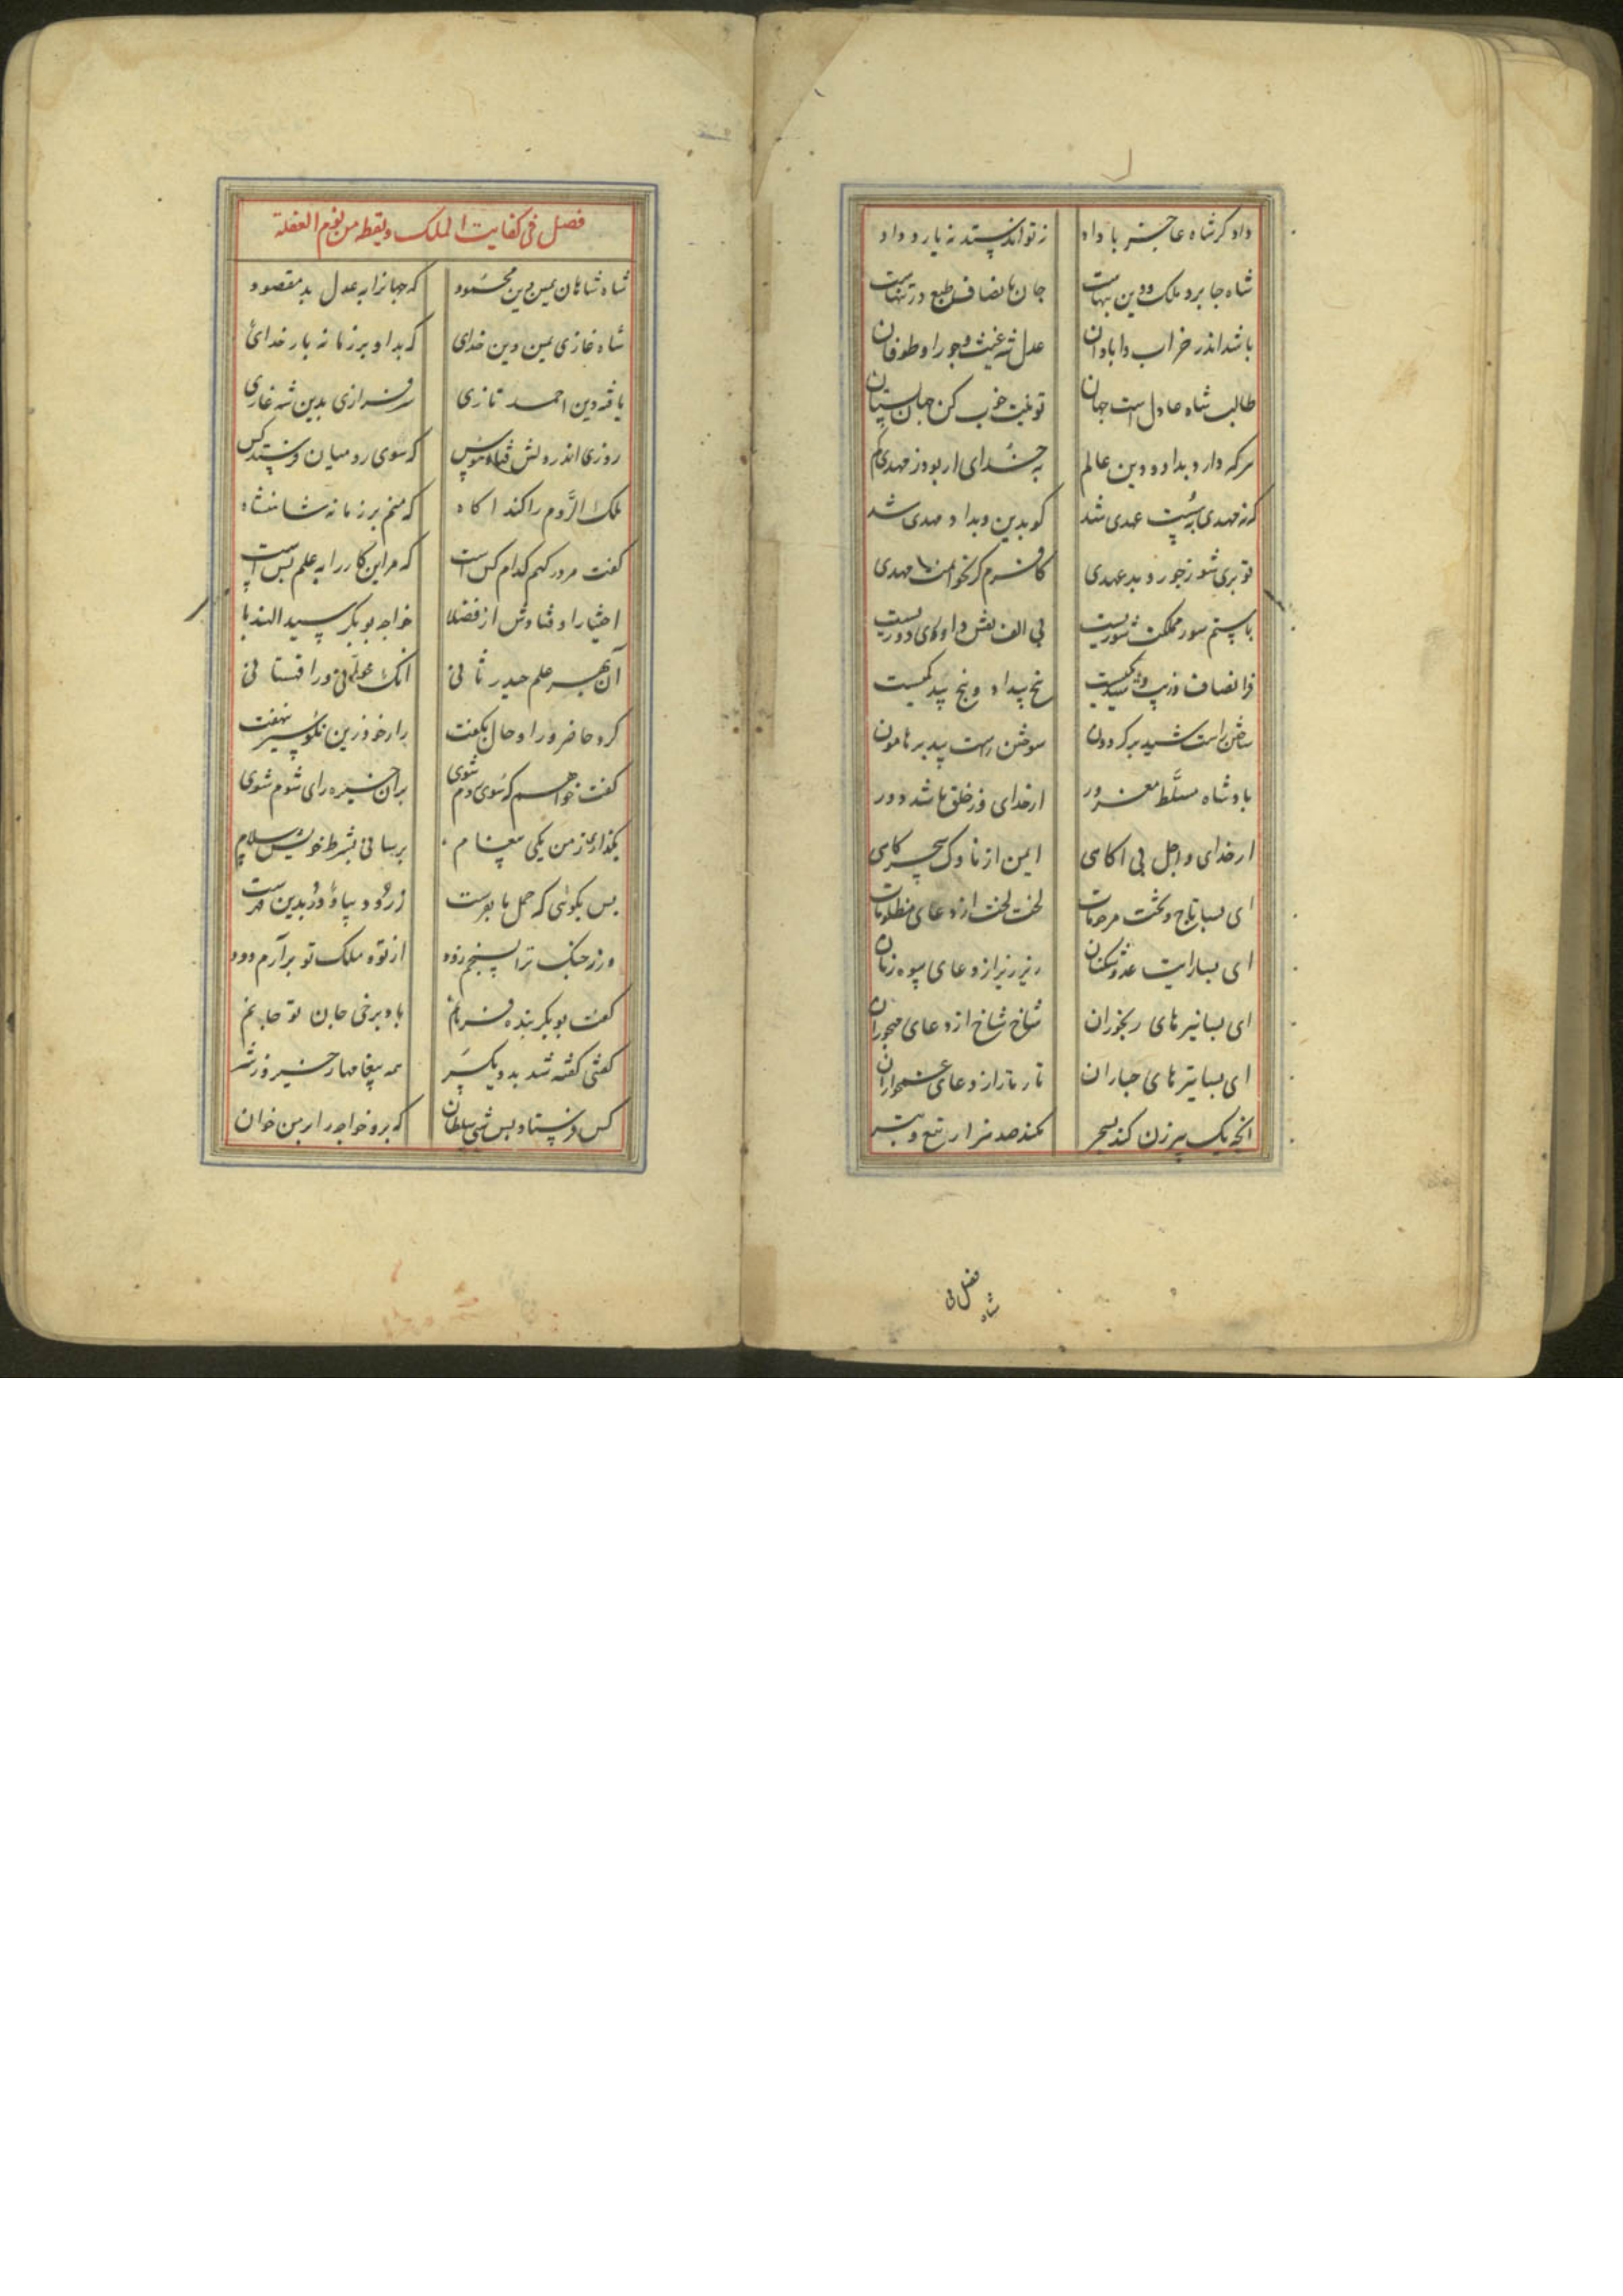 داد کر شاه عاجز با داد نتواند ستد نه یار و داد
شاه جابر و ملک و دین تنهاست جان با انصاف طبع در تنهاست
باشد اندر خراب و ابادان عدل شه غیث و جور او طوفان
طالب شاه عادل است جهان تو نیت خوب کن جهان بستان
هرکه دارد بداد و دین عالم بخدای ار بود ز مهدی کم
کز مهدی عهدی شد کو بدین و بداد مهدی شد
تو بری شو ز جور و بد عهدی کافرم کر نخوانمت مهدی
با ستم سور مملکت شوریست بی الف نقش داوری دوریست
فر انصاف و زیب کیست نخ بیداد و نخ کیست
ساختن راست شید بر کردون سوختن راست بید بر هامون
پادشاه مسلّط مغرور از خدای وز خلق باشد دور
از خدای و اجل بی اکاهی ایمن از ناوک سحر کاهی
ای بسا تاج و تخت مرحومان لخت لخت از دعای مظلومان
ای بسا رایت عدو شکنان ریز ریز از دعای بیوه زنان
ای بسا نیزهای رنجوران شاخ شاخ از دعای مهجوران
ای بسا تیرهای جباران تار تار از دعای غمخواران
انچه یک پیرزن کند بسحر نکند صد هزار تیغ و تبر
فصل فی
شاه
فصل فی کفایت الملک و یقظه من نوم الغفلة
شاه شاهان یمین دین محمود که جهانرا به عدل بد مقصود
شاه غازی یمین دین خدای که بداد بر زمانه بار خدای
یافته دین احمد تازی سر فرازی بدین شه غازی
روزی اندر دلش فتاد هوس که سوی رومیان فرستد کس
ملک الرّوم را کند اکاه که منم بر زمانه شاهنشاه
کفت مرد رکهم کدام کس است که مر این کار را به علم بس است
اختیار اوفتادش از فضلا خواجه بوبکر سید الندبا
آن بهر علم حیدر ثانی انک خوانی ورا قهستانی
کرد حاضر ورا و حال بکفت راز خود زین نکو سیر نهفت
کفت خواهم که سوی روم شوی بر آن خیره رای شوم شوی
بکذاری ز من یکی پیغام برسانی بشرط خویش سلام
پس بکوئی که حمل ما بفرست زر و دیبا و در بدین فرست
ورنه جنک ترا بسیجم زود از تو و ملک تو برآرم دود
کفت بوبکر بنده فرمانم باد برخی جان تو جانم
کفتی کفته شد بدو یکسر همه پیغامها ز خیر و ز شر
کس فرستاد پس شبی سلطان که برو خواجه را بر من خوان